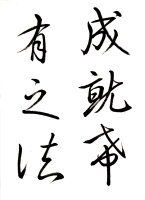 成就希
有之法